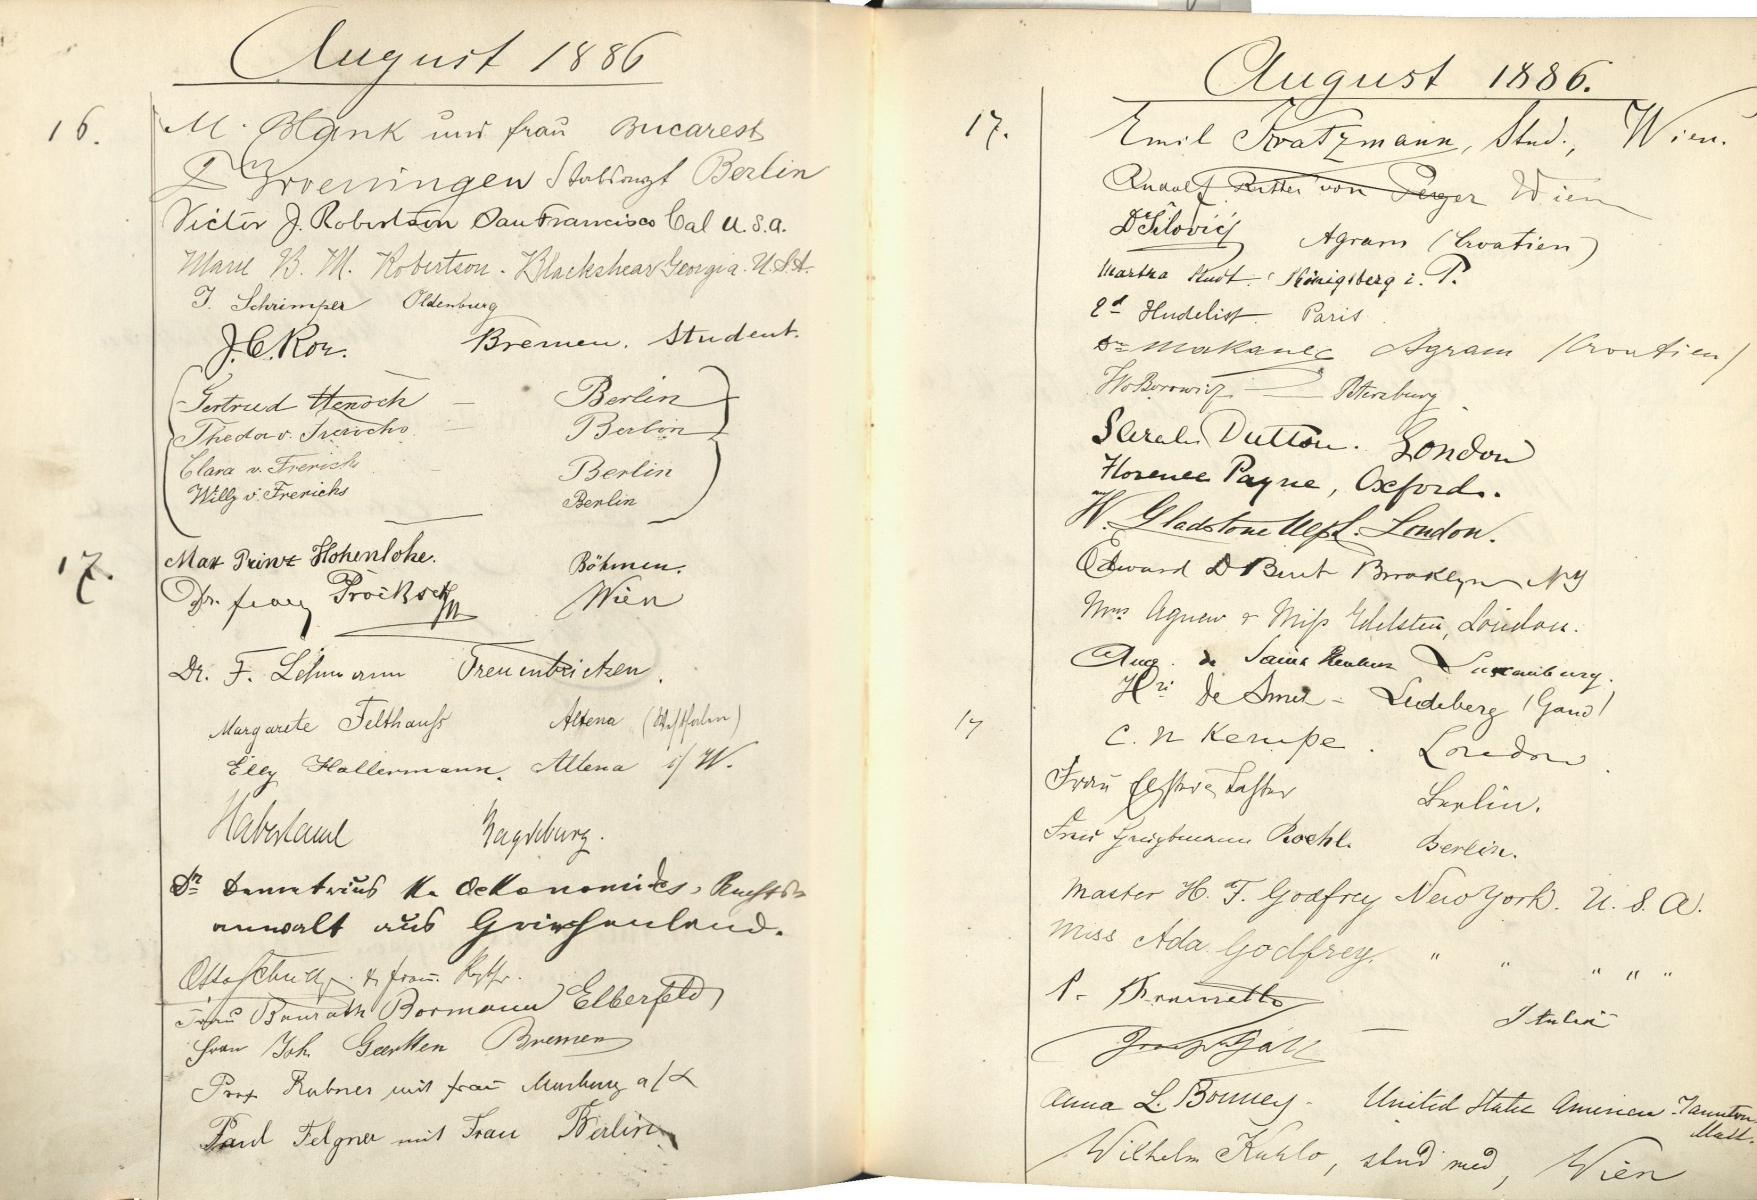 August 1886
16.
M. Blank und frau Bucarest
Groeningen Stabsarzt Berlin
Victor J. Robertson San Francisco Cal U.S.A.
B. M. Robertson. Blackshear Georgia. U.S.A.
Schrimper Oldenburg
J. C. Bremen. Student.
Gertrud Henoch — Berlin
v. Frerichs — Berlin
Clara v. Frerichs - Berlin
Willy v. Frerichs Berlin
17.
Max Prinz Hohenlohe. Böhmen.
Dr. Proksch Wien
Dr. F. Lehmann Treuenbrietzen.
Margarete Felthauss Altena (Westfalen)
Elly Hallermann. Altena i/W.
Magdeburg.
Dr Demetrius Oekonomides, Rechts-
anwalt aus Griechenland.
Otto & frau.
Frau Baurath Bormann Elberfeld
Frau Joh. Geerken Bremen
Prof Rubner mit frau Marburg a/L
Paul Felgner mit Frau Berlin
August 1886.
17.
Emil Kratzmann, Stud., Wien.
Rudolf Ritter von Wien
Dr Šilović Agram (Croatien)
Martha Königsberg i. P.
Ed Hudelist Paris
Dr Makanec Agram (Croatien)
Petersburg
Sarah Dutton. London
Florence Payne, Oxford.
W. Gladstone London.
Edward D Burt Brooklyn NY
Mrs Agnew & Miss Edelsten, London.
Aug. de Saint Luxemburg.
Hri de Smet - Ledeberg (Gand)
17
C. N Kempe. London.
Frau Berlin.
Frau Berlin.
Master H. F. Godfrey New York. U.S.A.
Miss Ada Godfrey. " " " " "
Italia
Anna L. Bonney. United States America Taunton
Mass.
Wilhelm Kuhlo, stud med, Wien